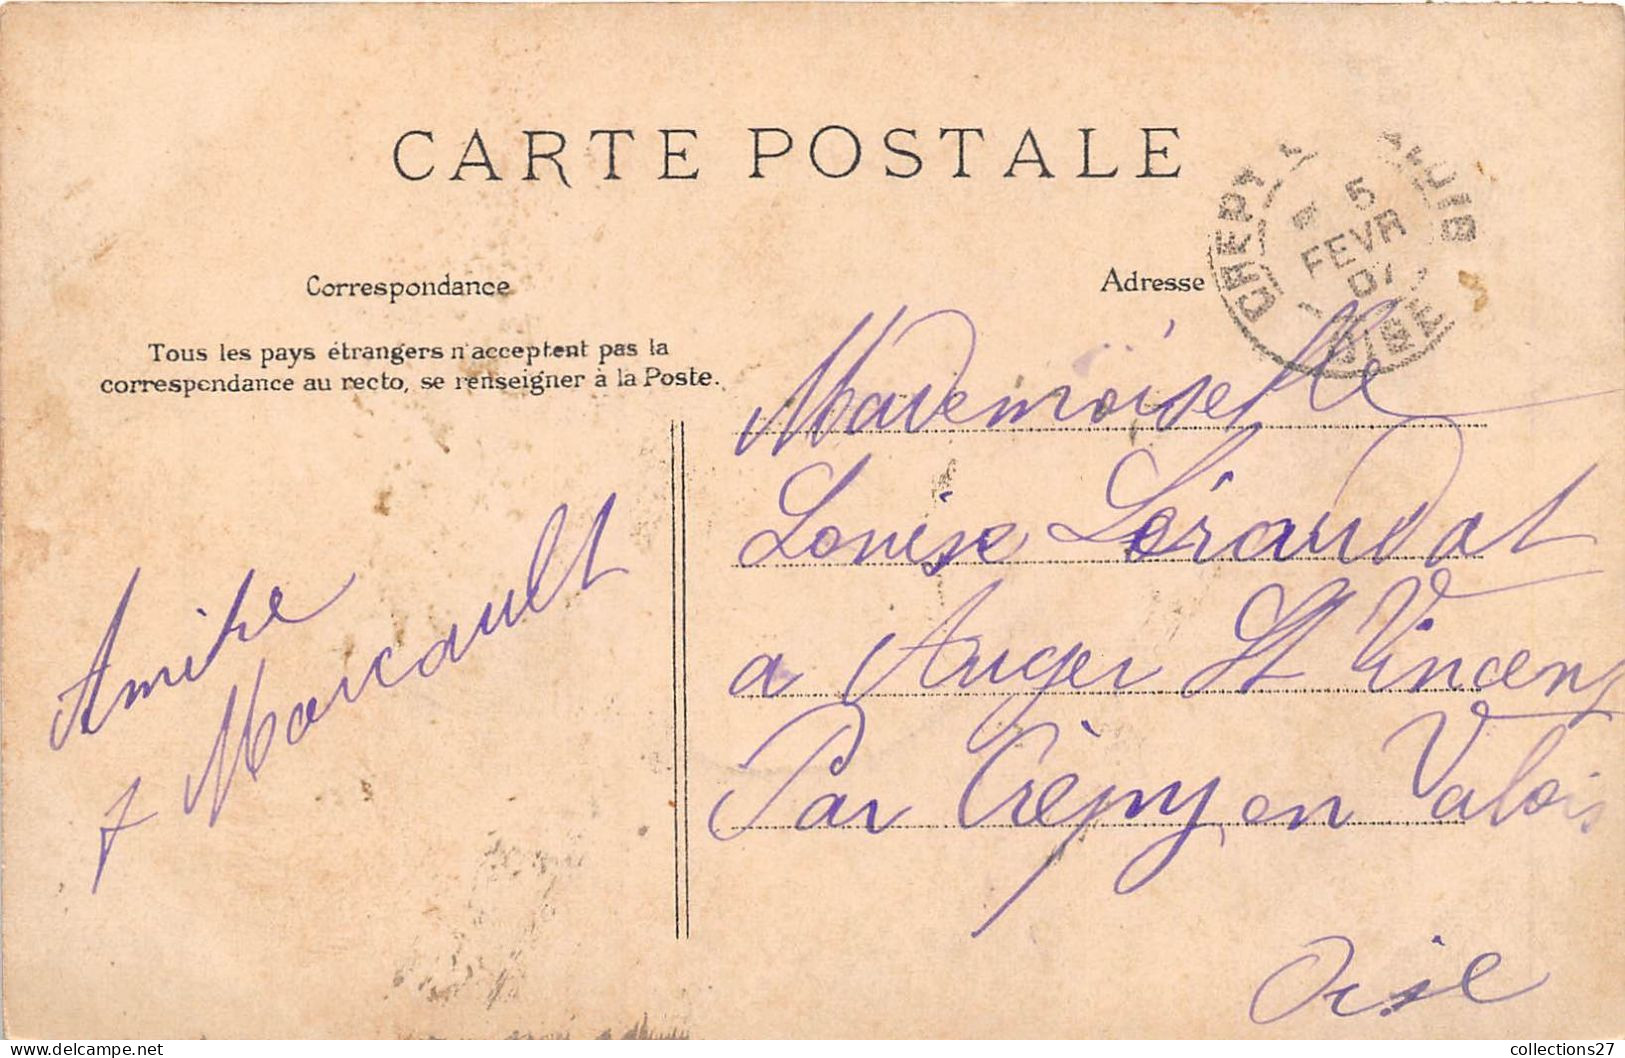 CARTE POSTALE
Correspondance
Tous les pays étrangers n'acceptent pas la
correspondance au recto, se renseigner à la Poste.
Adresse
5
FEVR
07
OISE
Mademoiselle
Louise
a Auger St Vincent
Par Crépy en Valois
Oise
collections27